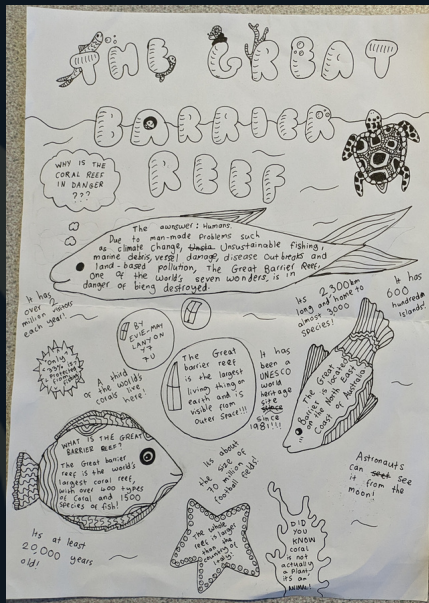 THE GREAT
BARRIER
REEF
WHY IS THE
CORAL REEF
IN DANGER
???
The awnser: Humans.
Due to man-made problems such
as climate change, Unsustainable fishing,
marine debris, vessel damage, disease outbreaks and
land-based pollution, The Great Barrier Reef,
one of the world's seven wonders, is in
danger of bieng destroyed.
It has
over
million visitors
each year!
Its 2,300km
long and home to
almost 3000
species!
It has
600
hundred
islands!
BY
EVIE-MAY
LANYON
"Only
33% is
protected
A third
of the world's
corals live
here!
The Great
barrier reef
is the largest
living thing on
earth and is
visible from
Outer space!!!
It has
been a
UNESCO
world
heritage
site
since
1981!!!
The Great
Barrier is located
on the North East
Coast of Australia
WHAT IS THE GREAT
BARRIER REEF?
The Great barrier
reef is the world's
largest coral reef,
with over 400 types
of Coral and 1500
species of fish!
Its about
the size of
70 million
football fields!
Astronauts
can see
it from the
moon!
Its at least
20,000 years
old!
The whole
reef is larger
than the
country of
Italy!
DID
YOU
KNOW
coral
is not
actually
a Plant
its an
ANIMAL!